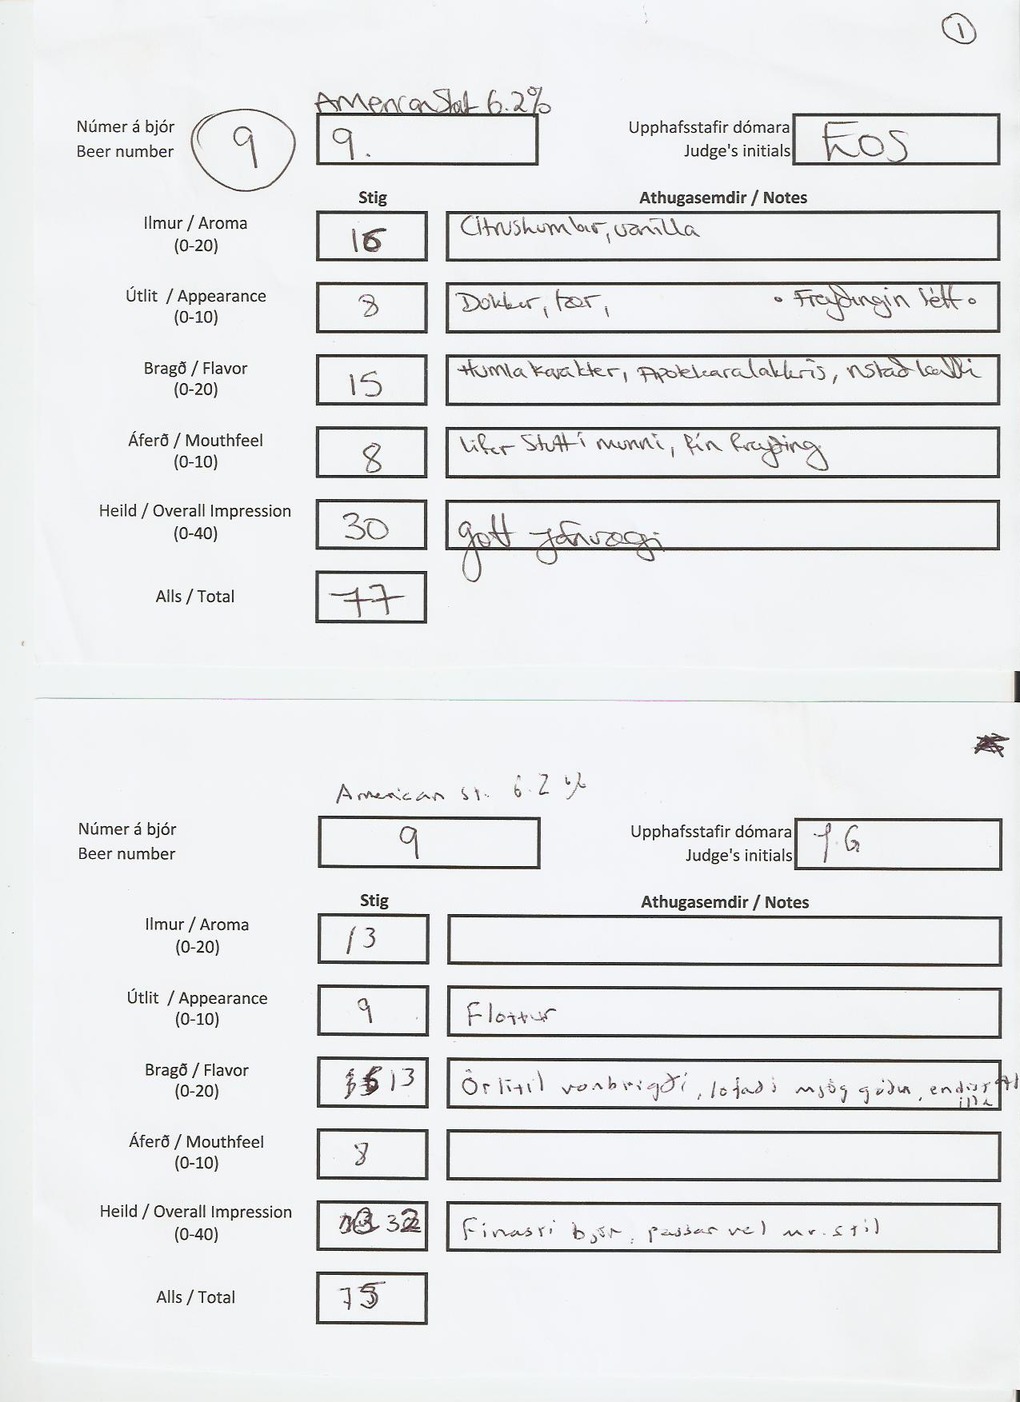 1
American Stout 6.2%
Númer á bjór
Beer number
9
9.
Upphafsstafir dómara
Judge's initials
EOS
Stig
Athugasemdir / Notes
Ilmur / Aroma
(0-20)
16
Citrushumlar, vanilla
Útlit / Appearance
(0-10)
8
Dökkur, tær,
• Freyðingin létt •
Bragð / Flavor
(0-20)
15
Humla karakter, Apótekaralakkrís, ristað kaffi
Áferð / Mouthfeel
(0-10)
8
Lifir stutt í munni, fín freyðing
Heild / Overall Impression
(0-40)
30
gott jafnvægi
Alls / Total
77
American St. 6.2 %
Númer á bjór
Beer number
9
Upphafsstafir dómara
Judge's initials
J.G
Stig
Athugasemdir / Notes
Ilmur / Aroma
(0-20)
13
Útlit / Appearance
(0-10)
9
Flottur
Bragð / Flavor
(0-20)
13
Örlítil vonbrigði, lofaði mjög góðu, endist illa
Áferð / Mouthfeel
(0-10)
8
Heild / Overall Impression
(0-40)
32
Finasti bjór, passar vel m.v. stíl
Alls / Total
75